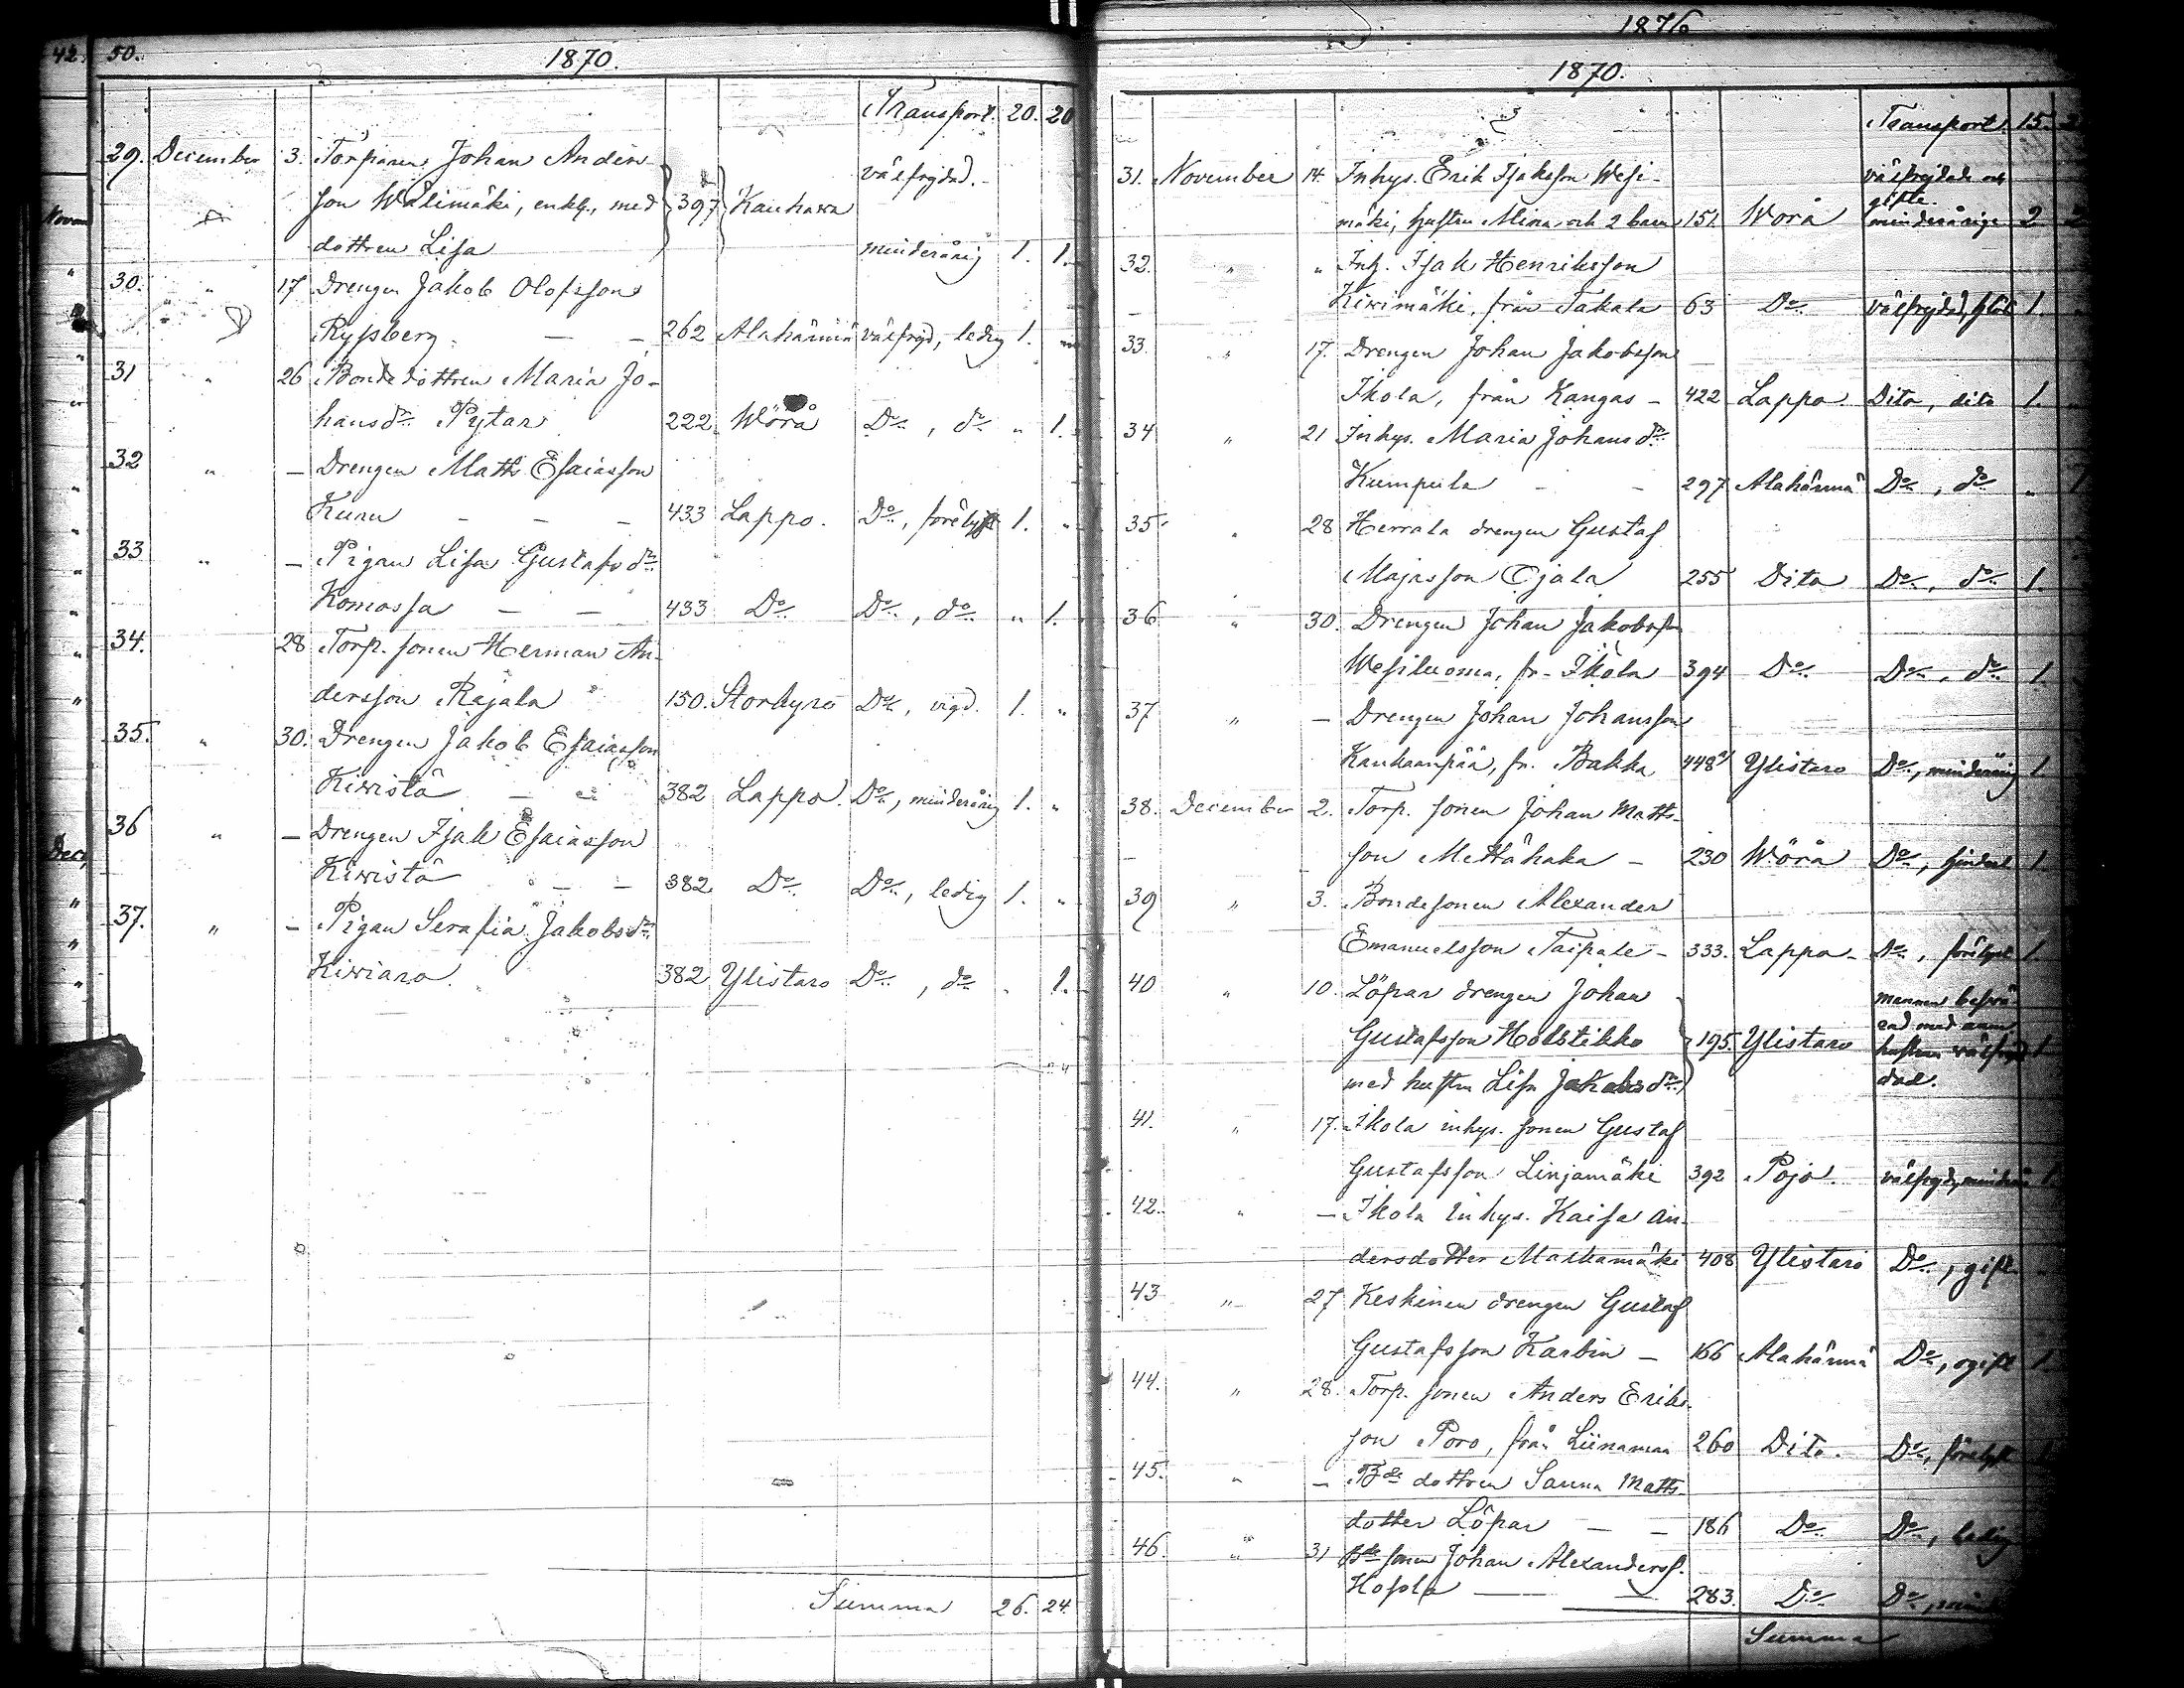 42.
50.
1870.
Transport. 20. 20
29. December 3. Torparen Johan Anders-
son Wälimäki, enkl., med 397 Kauhava välfrejdad.
dottren Lisa minderårig 1. 1.
30. " 17 Drengen Jakob Olofsson
Ryssberg. — — 262 Alahärmä välfrejd, ledig 1. "
31 " 26 Bondedottren Maria Jo-
hansdr Pytar 222. Wörå Do, do " 1.
32 " — Drengen Matts Esaiasson
Kuru — — — 433 Lappo. Do, förelyst 1. "
33 " — Pigan Lisa Gustafsdr
Komossa — — 433 Do Do, do " 1.
34. 28 Torp. sonen Herman An-
dersson Rajala 150. Storkyro Do, vigd. 1. "
35. " 30. Drengen Jakob Esaiasson
Kivistö — " 382 Lappo. Do, minderårig 1. "
36 " — Drengen Isak Esaiasson
Kivistö — — 382. Do Do, ledig 1. "
37. " — Pigan Serafia Jakobsdr
Kiviaro. 382 Ylistaro Do, do . 1.
Summa 26. 24.
1876
1870.
Transport. 15.
31. November 14. Inhys. Erik Isaksson Wesi- välfrejdade och
gifte.
mäki, hustru Mina och 2 barn 151. Worå minderårige 2
32. " " Inh. Isak Henriksson
Kivimäki, från Takala 63 Do välfrejdad, 1.
33. " 17. Drengen Johan Jakobsson
Ikola, från Kangas — 422 Lappo. Dito, dito 1.
34 " 21 Inhys. Maria Johansdr
Kumpula — — 297 Alahärmä Do, do " 1
35. " 28 Herrala drengen Gustaf
Majasson Ojala 255 Dito Do, do 1.
36 " 30. Drengen Johan Jakobsson
Wesiluoma, fr. Ikola 394 Do Do, do 1.
37 " — Drengen Johan Johansson
Kankaanpää, fr. Bakka 448 Ylistaro Do, minderårig 1
38. December 2. Torp. sonen Johan Matts-
son Mettähaka — 230 Wörå Do, 1.
39 " 3. Bondesonen Alexander
Emanuelsson Taipale — 333. Lappo — Do, förelyst 1.
40 " 10. Löpar drengen Johan mannen
Gustafsson Holstikko 195. Ylistaro hustrun välfrejdad. 1
med hustru Lisa Jakobsdr
41. " 17. Ikola inhys. sonen Gustaf
Gustafsson Linjamäki 392 Pojo. välfrejd, 1
42. " — Ikola inhys. Kaisa An-
dersdotter Markamäki 408 Ylistaro Do, gift "
43 " 27 Keskinen drengen Gustaf
Gustafsson Karbin — 166 Alahärmä Do, ogift 1.
44. " 28. Torp. sonen Anders Eriks-
son Poro, från Liinamaa 260 Dito. Do, förelyst
45. " — Bde dottren Sanna Matts-
dotter Löpar — — 186 Do Do, ledig
46. " 31 Bde sonen Johan Alexanderss.
Hosola — — 283. Do Do,
Summa